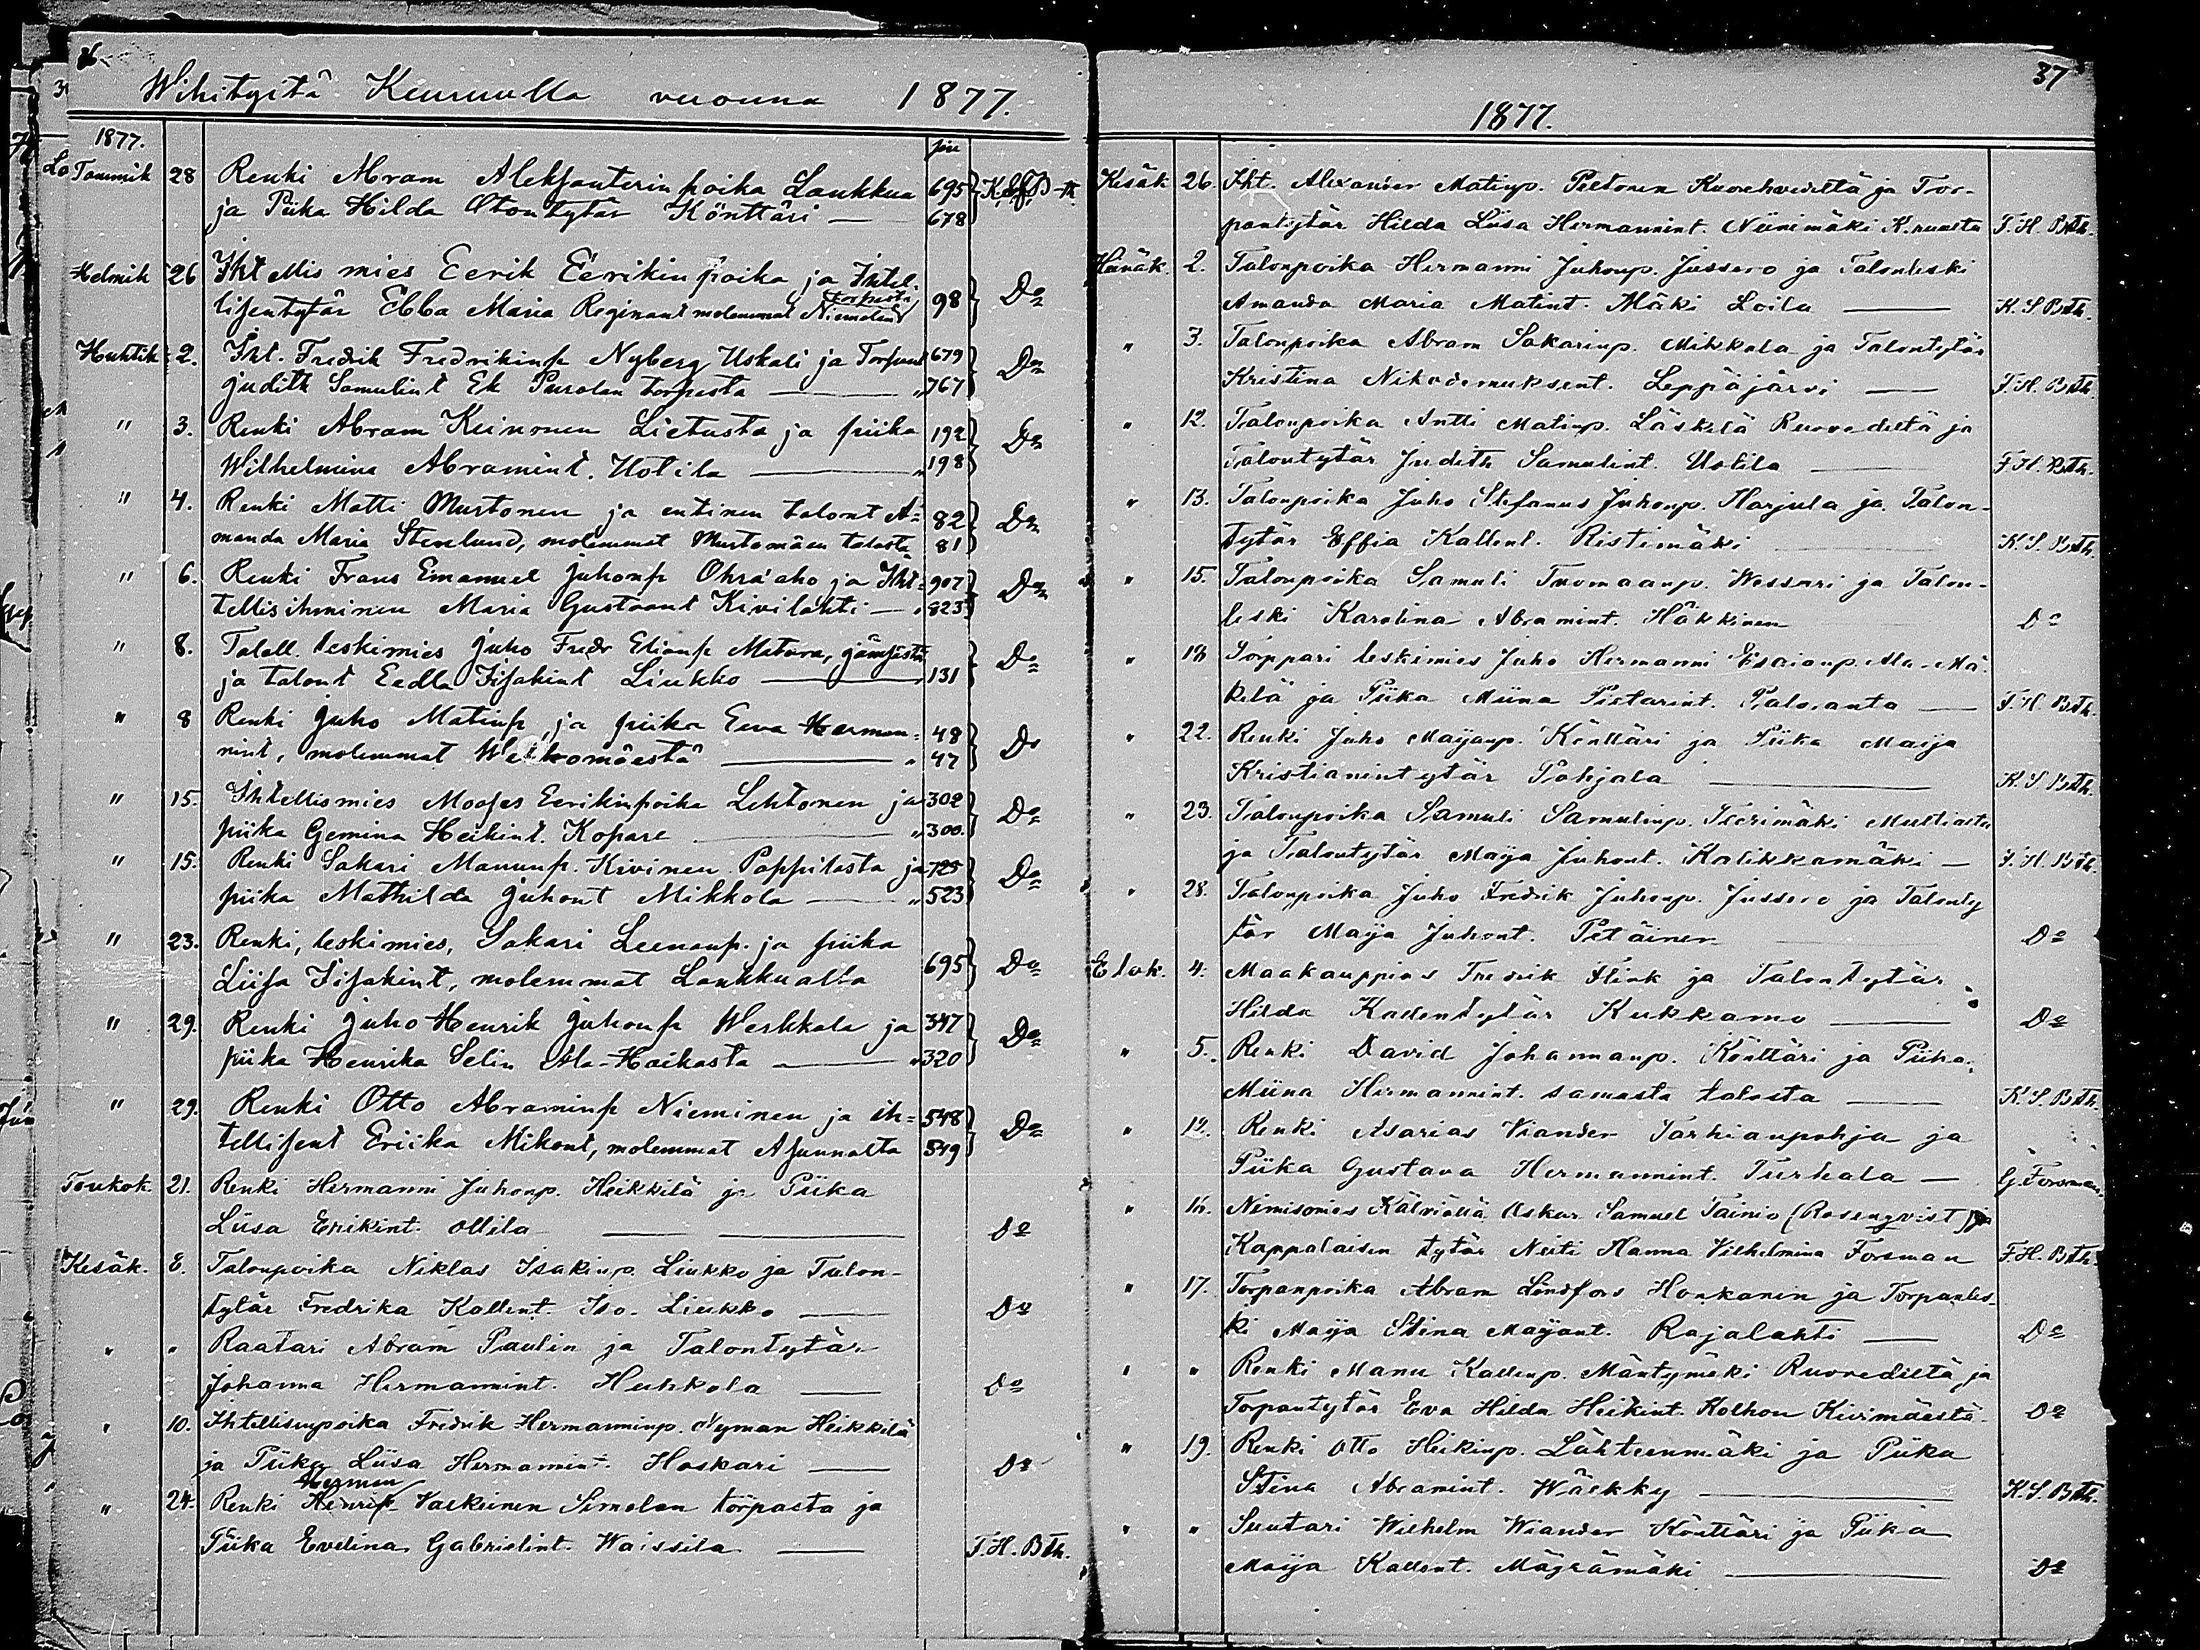 Wihityitä Keuruulla vuonna 1877.
1877.
siv
Tammik 28 Renki Abram Aleksanterin poika Laukkua 695
ja Piika Hilda Otontytär Könttäri — 678
Helmik 26 Ihtellis mies Eerik Eerikin poika ja Ihtel-
lisentytär Ebba Maria Reginant molemmat Niemelän torpasta 98 Do
Huhtik 2. Iht. Fredrik Fredrikinp Nyberg Uskali ja Torpant 679
Judith Samulint Ek Purolan torpasta — „ 767 Do
" 3. Renki Abram Keinonen Lietusta ja piika 192
Wilhelmina Abramint. Uotila — „ 198 Do
" 4. Renki Matti Mustonen ja entinen talont A- 82
manda Maria Stenlund, molemmat Mustamäen talosta 81 Do
" 6. Renki Frans Emanuel Juhonp Ohra'aho ja Iht- 907
tellisihminen Maria Gustaant Kivilahti — „ 823 Do
" 8. Taloll. leskimies Juho Fredr Elianp Metura, Jämsästä
ja talont Eedla Iisakint Liukko — „ 131 Do
" 8 Renki Juho Matinp, ja piika Eeva Herman- 48
nint, molemmat Weikomäestä — „ 47 Do
" 15. Ihtellismies Mooses Eerikinpoika Lehtonen ja 302
piika Gemina Heikint. Kopare — „ 300. Do
" 15. Renki Sakari Manunp. Kivinen Pappilasta ja 725
piika Mathilda Juhont Mikkola — „ 523 Do
" 23. Renki, leskimies, Sakari Leenanp. ja piika
Liisa Iisakint, molemmat Laukkualta 695 Do
" 29. Renki Juho Henrik Juhonp Werkkala ja 347
piika Henrika Selin Ala-Haikasta — „ 320 Do
" 29. Renki Otto Abraminp Nieminen ja ih- 548
tellisent Eriika Mikont, molemmat Asunnalta 549 Do
Toukok. 21. Renki Hermanni Juhonp. Heikkilä ja Piika
Liisa Erikint. Ollila — Do
Kesäk. 8. Talonpoika Niklas Isakinp. Liukko ja Talon-
tytär Fredrika Kallent. Iso-Liukko — Do
" " Raatari Abram Paulin ja Talontytär
Johanna Hermannint. Huhkola — Do
" 10. Ihtellisenpoika Fredrik Hermanninp. Nyman Heikkilä
ja Piika Liisa Hermannint. Hoskari — Do
Herman
" 24. Renki Henrik Vaskinen Simolan torpasta ja
Piika Evelina Gabrielint. Waissila — F. H. Bth.
37
1877.
Kesäk 26. Iht. Alexander Matinp. Peltonen Kuorehvedeltä ja Tor-
pantytär Hilda Liisa Hermannint. Niinimäki K.ruulta F. H. Bth.
Heinäk. 2. Talonpoika Hermanni Juhonp. Jussero ja Talonleski
Amanda Maria Matint. Mäki Loila — K. S. Bth.
" 3. Talonpoika Abram Sakarinp. Mikkola ja Talontytär
Kristina Nikodemuksent. Leppäjärvi — F. H. Bth.
" 12. Talonpoika Antti Matinp. Läskelä Ruovedeltä ja
Talontytär Judith Samulint. Uotila — F. H. Bth.
" 13. Talonpoika Juho Stefanus Juhonp. Harjula ja Talon-
tytär Effia Kallent. Ristimäki — K. S. Bth.
" 15. Talonpoika Samuli Tuomaanp. Wessari ja Talon-
leski Karolina Abramint. Häkkinen Do
" 18 Torppari leskimies Juho Hermanni Esaianp. Ala-Mä-
kelä ja Piika Miina Pietarint. Paloranta — F. H. Bth.
" 22. Renki Juho Maijanp. Könttäri ja Piika Maija
Kristianintytär Pohjala — K. S. Bth.
" 23. Talonpoika Samuli Samulinp. Tterimäki Multialta
ja Talontytär Maija Juhont. Kalikkamäki — F. H. Bth.
" 28. Talonpoika Juho Fredrik Juhonp. Jussero ja Talonty
tär Maija Juhont. Petäinen Do
Elok. 4. Maakauppias Fredrik Flink ja Talontytär
Hilda Kallentytär Kukkamo — Do
" 5. Renki David Johannanp. Könttäri ja Piika
Miina Hermannint. samasta talosta — K. S. Bth.
" 12. Renki Asarias Viander Tarhianpohja ja
Piika Gustava Hermannint. Turkala — G. Forsman.
" 16. Nimismies Kälviällä Oskar Samuel Tainio (Rosenqvist) ja
Kappalaisen tytär Neiti Hanna Vilhelmina Forsman F. H. Bth.
" 17. Torpanpoika Abram Lindfors Honkanen ja Torpanles-
ki Maija Stina Maijant. Rajalahti — Do
" " Renki Manu Kallenp. Mäntymäki Ruovedeltä ja
Torpantytär Eva Hilda Heikint. Kolhon Kivimäestä. Do
" 19. Renki Otto Heikinp. Lähteenmäki ja Piika
Stina Abramint. Wärkky — K. S. Bth.
" " Suutari Wilhelm Wiander Könttäri ja Piika
Maija Kallent. Mägrämäki — Do